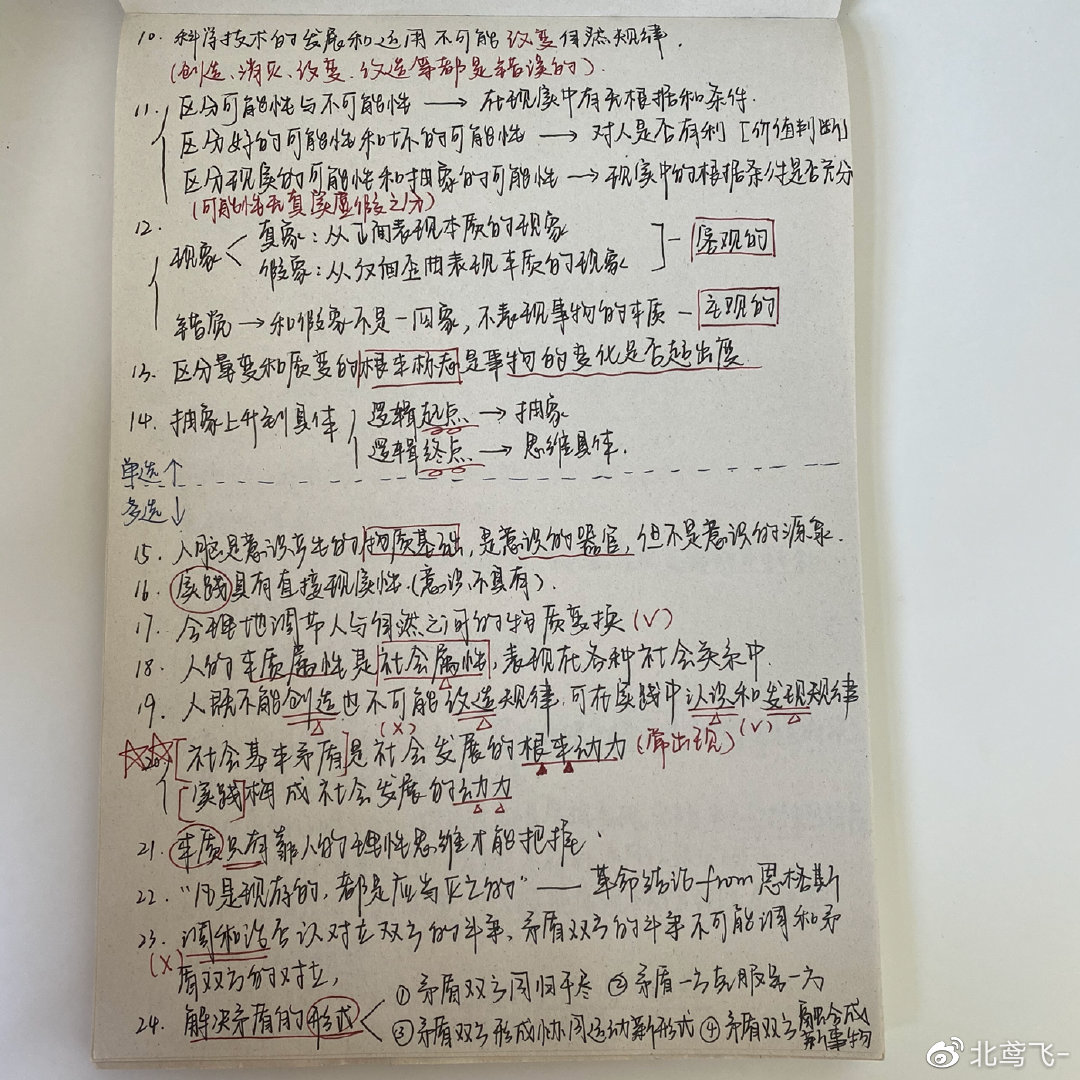 10. 科学技术的发展和运用不可能改变自然规律.
(创造、消灭、改变、改造等都是错误的).
11. 区分可能性与不可能性 → 在现实中有无根据和条件.
区分好的可能性和坏的可能性 → 对人是否有利 [价值判断]
区分现实的可能性和抽象的可能性 → 现实中的根据条件是否充分
(可能性无真实虚假之分)
12.
现象 < 真象：从正面表现本质的现象
假象：从反面歪曲表现本质的现象 ] - 客观的
错觉 → 和假象不是一回事, 不表现事物的本质 - 主观的
13. 区分量变和质变的根本标志是事物的变化是否超出度.
14. 抽象上升到具体 { 逻辑起点 → 抽象
逻辑终点 → 思维具体.
单选↑
多选↓
15. 人脑是意识产生的物质基础, 是意识的器官, 但不是意识的源泉.
16. 实践具有直接现实性. (意识不具有).
17. 合理地调节人与自然之间的物质变换 (√)
18. 人的本质属性是社会属性, 表现在各种社会关系中.
19. 人既不能创造也不可能改造规律, 可在实践中认识和发现规律
(×) (√)
☆☆ 20. [社会基本矛盾] 是社会发展的根本动力 (常出现)
[实践] 构成社会发展的动力
21. 本质只有靠人的理性思维才能把握.
22. “凡是现存的, 都是应当灭亡的” —— 革命结论 from 恩格斯
23. 调和论否认对立双方的斗争, 矛盾双方的斗争不可能调和矛
(×) 盾双方的对立,
24. 解决矛盾的形式 < ① 矛盾双方同归于尽 ② 矛盾一方克服另一方
③ 矛盾双方形成协同运动新形式 ④ 矛盾双方融合成
新事物
北鸢飞-